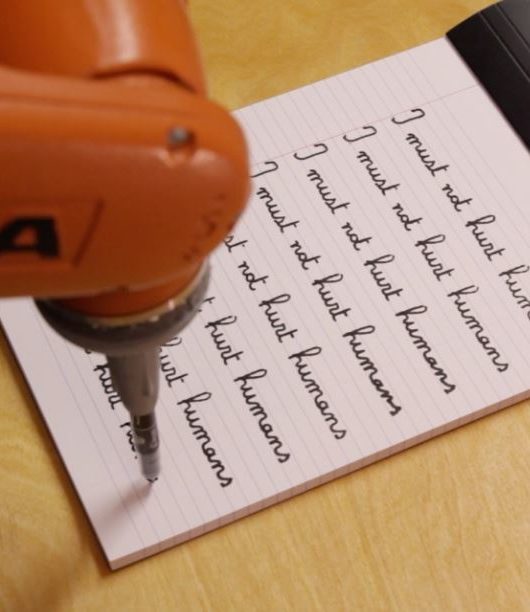 I must not hurt
I must not hurt humans
I must not hurt humans
I must not hurt humans
not hurt humans
hurt humans
hurt humans
hurt